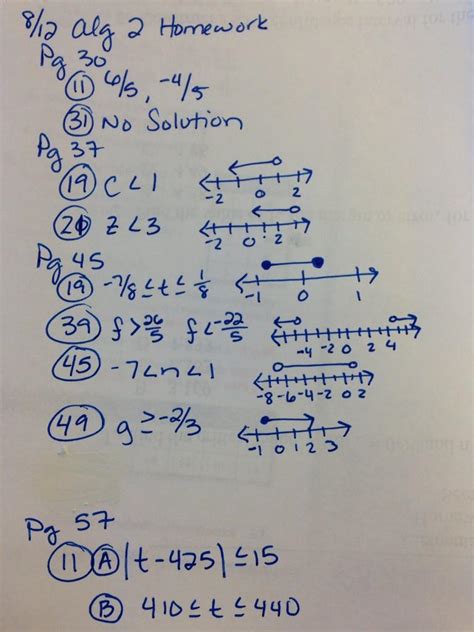 8/12 Alg 2 Homework
Pg 30
11 6/5, -4/5
31 No Solution
Pg 37
19 c < 1 -2 0 2
z < 3 -2 0 2
Pg 45
19 -7/8 ≤ t ≤ 1/8 -1 0 1
39 f > 26/5 f < -22/5 -4 -2 0 2 4
45 -7 < n < 1 -8 -6 -4 -2 0 2
49 g ≥ -2/3 -1 0 1 2 3
Pg 57
11 A |t - 425| ≤ 15
B 410 ≤ t ≤ 440